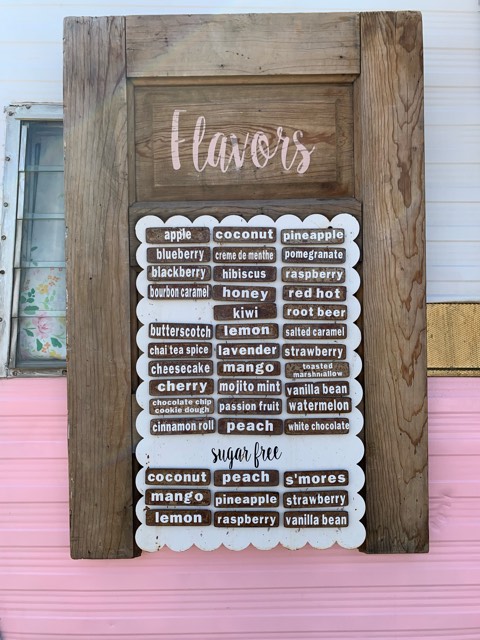 Flavors
apple coconut pineapple
blueberry creme de menthe pomegranate
blackberry hibiscus raspberry
bourbon caramel honey red hot
kiwi root beer
butterscotch lemon salted caramel
chai tea spice lavender strawberry
cheesecake mango toasted marshmallow
cherry mojito mint vanilla bean
chocolate chip cookie dough passion fruit watermelon
cinnamon roll peach white chocolate
sugar free
coconut peach s'mores
mango pineapple strawberry
lemon raspberry vanilla bean